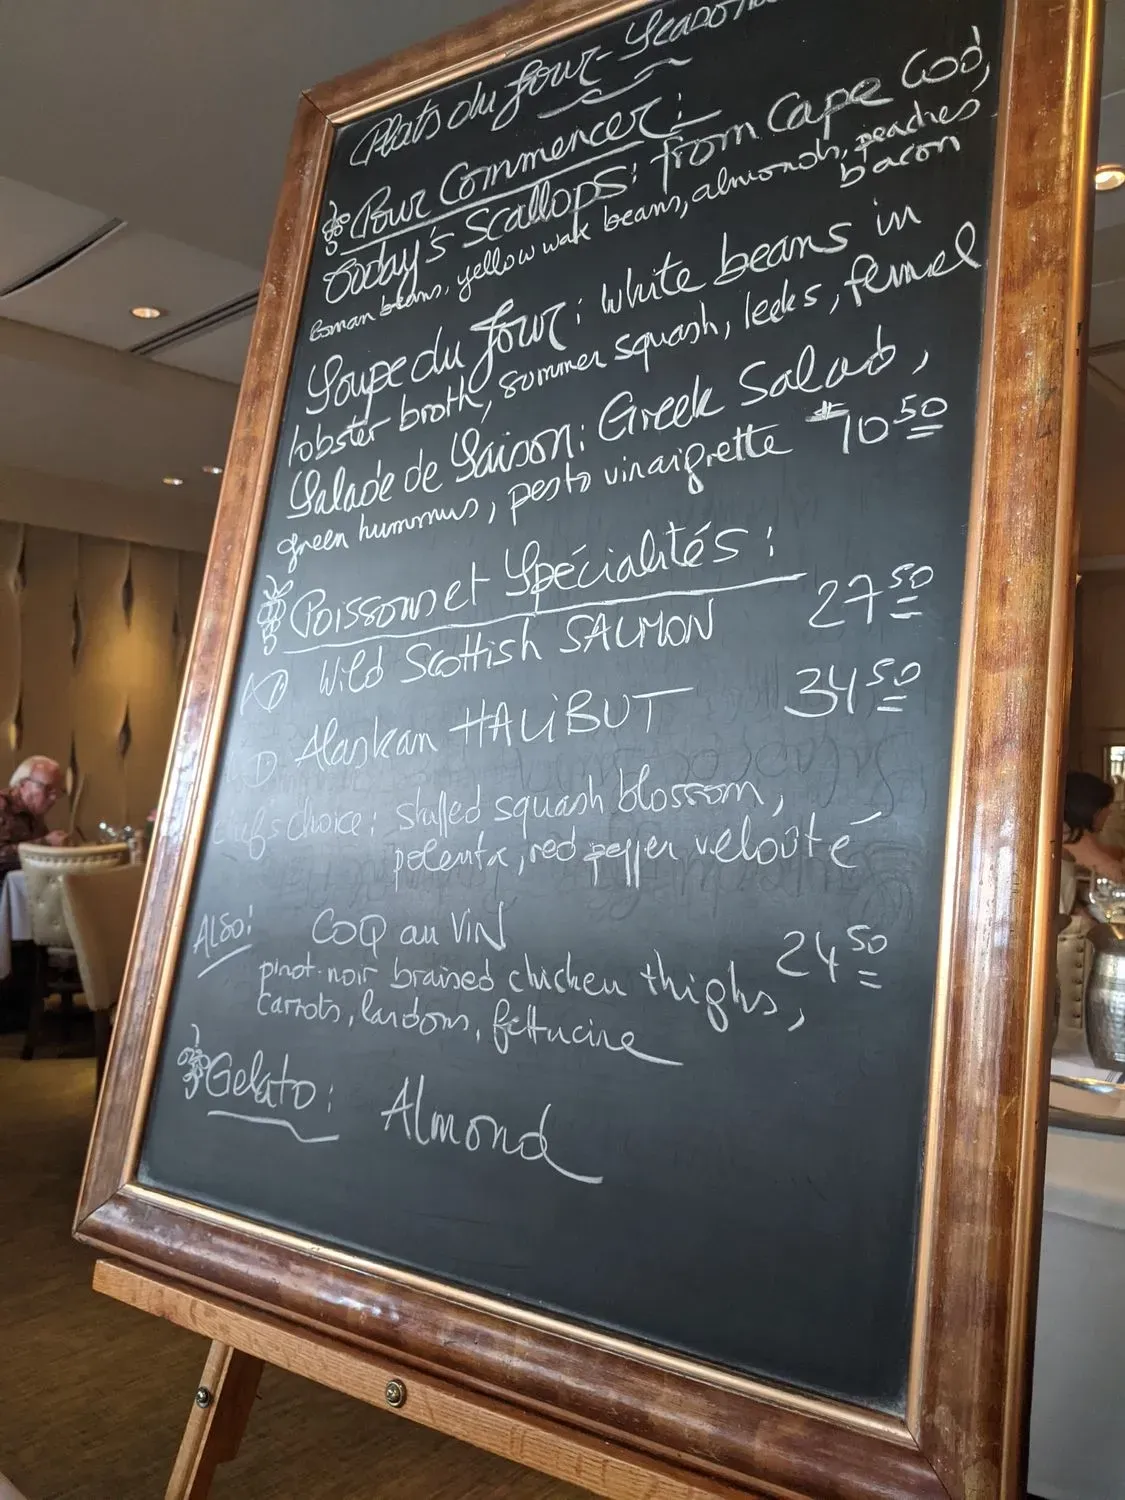 Plats du Jour - Seasonal
Pour Commencer:
Today's Scallops: from Cape Cod,
roman beans, yellow wax beans, almonds, peaches
bacon
Soupe du Jour: White beans in
lobster broth, summer squash, leeks, fennel
Salade de Saison: Greek Salad,
green hummus, pesto vinaigrette $10.50
Poisson et Spécialités:
Wild Scottish SALMON 27.50
Alaskan HALIBUT 34.50
chef's choice: stuffed squash blossom,
polenta, red pepper velouté
ALSO! COQ au VIN 24.50
pinot-noir braised chicken thighs,
carrots, lardons, fettucine
Gelato: Almond